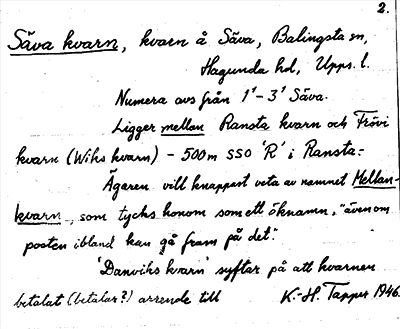 2.
Säva kvarn, kvarn å Säva, Balingsta sn,
Hagunda hd, Upps. l.
Numera avs från 1¹-3¹ Säva.
Ligger mellan Ransta kvarn och Frövi
kvarn (Wiks kvarn) - 500m SSO 'R' i Ransta.-
Ägaren vill knappast veta av namnet Mellan-
kvarn, som tycks honom som ett öknamn, "även om
posten ibland kan gå fram på det".
'Danviks kvarn' syftar på att kvarnen
betalat (betalar?) arrende till K.-H. Tapper 1946.